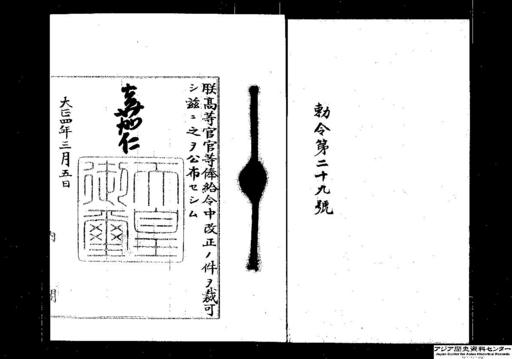 勅令第二十九號
朕高等官官等俸給令中改正ノ件ヲ裁可
シ茲ニ之ヲ公布セシム
嘉仁
天皇
御璽
大正四年三月五日
内閣
アジア歴史資料センター
Japan Center for Asian Historical Records